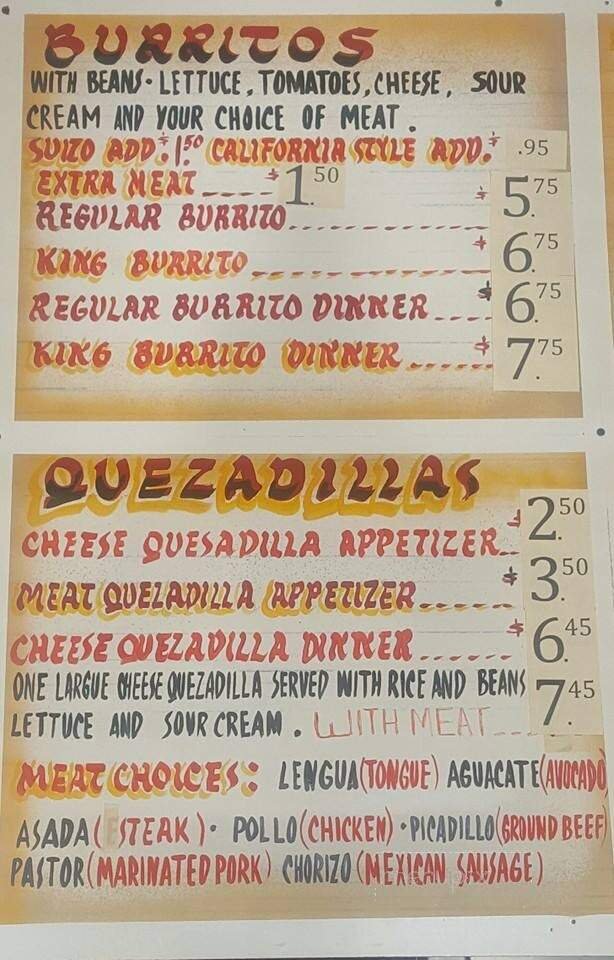 BURRITOS
WITH BEANS· LETTUCE, TOMATOES, CHEESE, SOUR
CREAM AND YOUR CHOICE OF MEAT.
SUIZO ADD $1.50 CALIFORNIA STYLE ADD. $ .95
EXTRA MEAT $ 1.50
REGULAR BURRITO $ 5.75
KING BURRITO $ 6.75
REGULAR BURRITO DINNER $ 6.75
KING BURRITO DINNER $ 7.75
QUEZADILLAS
CHEESE QUESADILLA APPETIZER $ 2.50
MEAT QUEZADILLA APPETIZER $ 3.50
CHEESE QUEZADILLA DINNER $ 6.45
ONE LARGUE CHEESE QUEZADILLA SERVED WITH RICE AND BEANS
LETTUCE AND SOUR CREAM. WITH MEAT 7.45
MEAT CHOICES: LENGUA (TONGUE) AGUACATE (AVOCADO)
ASADA (STEAK)· POLLO (CHICKEN)· PICADILLO (GROUND BEEF)
PASTOR (MARINATED PORK) CHORIZO (MEXICAN SAUSAGE)